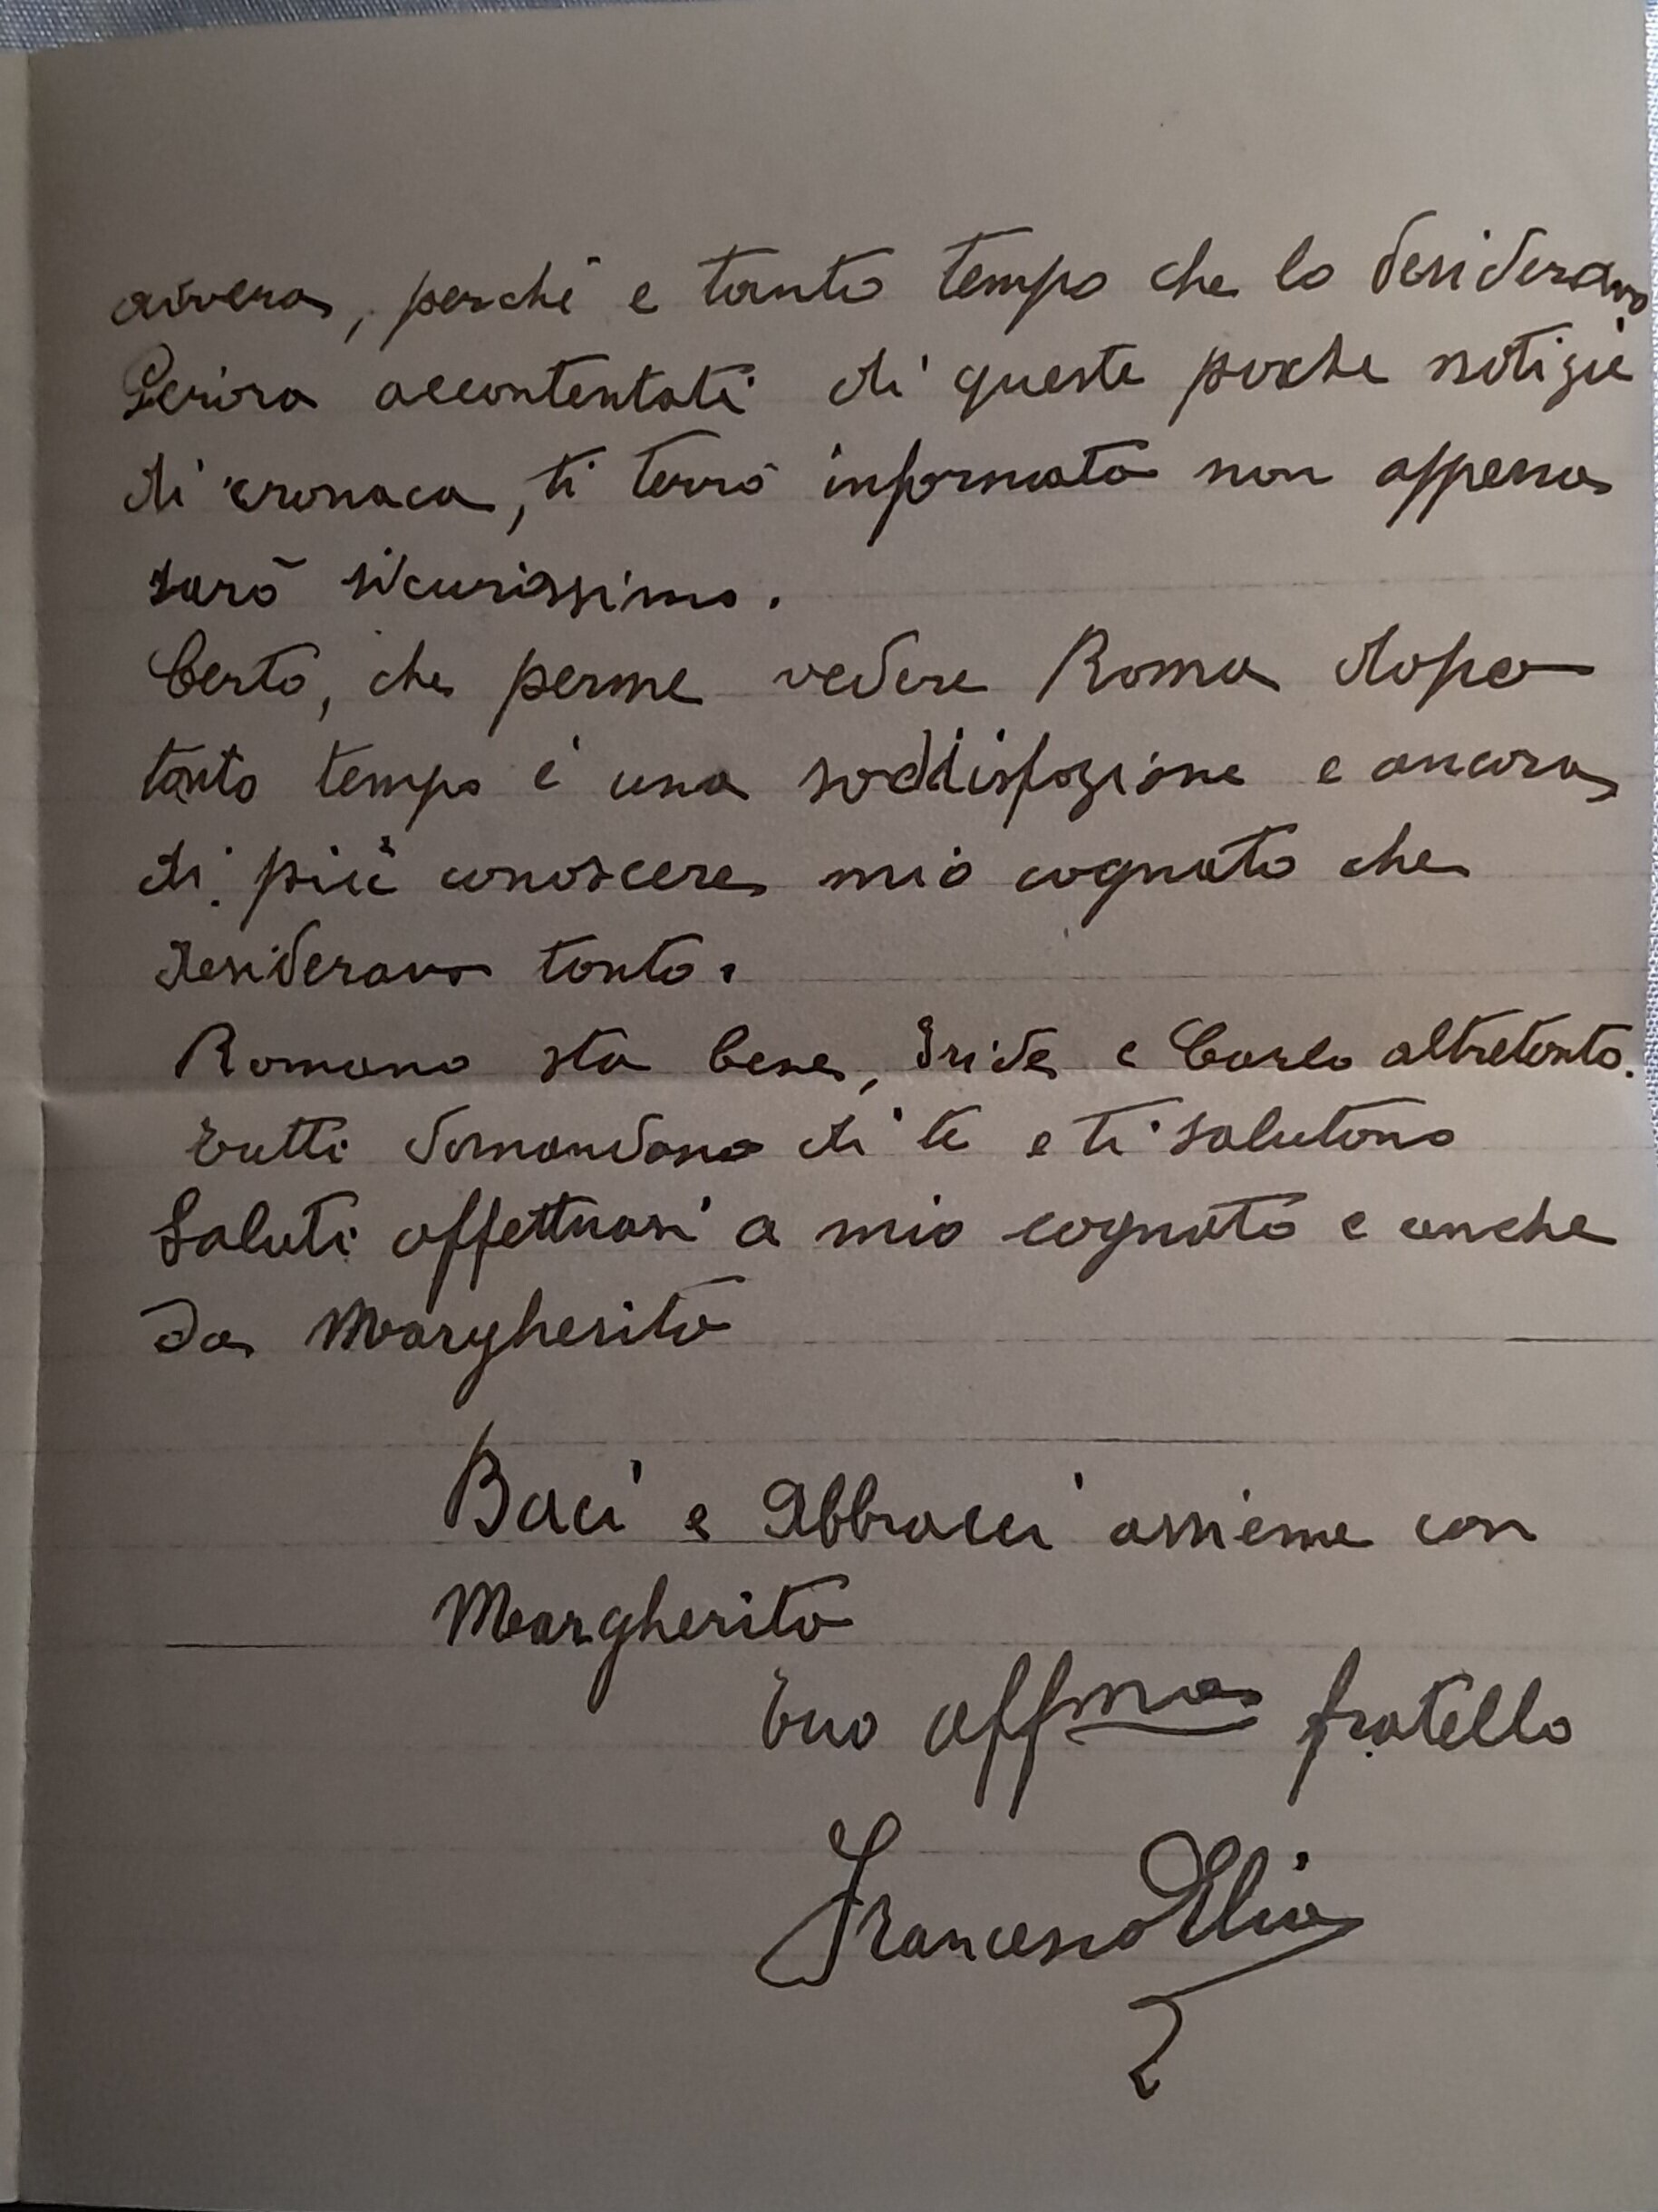 avvera, perché e tanto tempo che lo desideravo
accontentati di queste poche notizie
di cronaca, ti terrò informata non appena
sarò sicurissimo.
Certo, che perme vedere Roma dopo
tanto tempo è una soddisfazione e ancora
di più conoscere mio cognato che
desideravo tanto.
Romano sta bene, Iride e Carlo altretanto.
Tutti domandano di te e ti salutano
Saluti affettuosi a mio cognato e anche
da Margherita
Baci e Abbracci assieme con
Margherita
Tuo affmo fratello
Francesco Elia